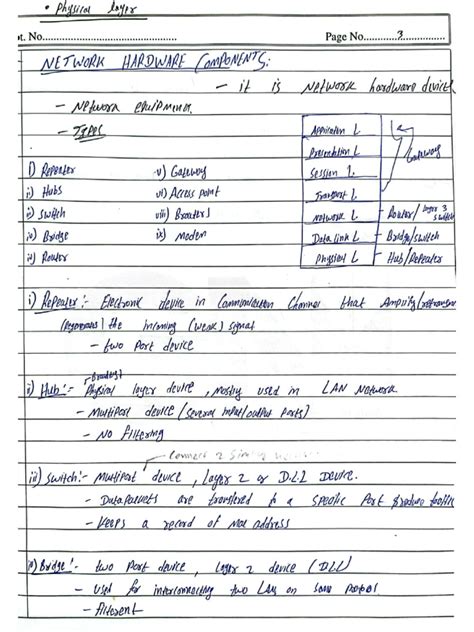 • Physical layer
pt. No.
Page No. 3
NETWORK HARDWARE COMPONENTS:
- it is network hardware device
- Network equipment
- Types
i) Repeater
v) Gateway
ii) Hubs
vi) Access point
iii) Switch
viii) Brouters
iv) Bridge
ix) Modem
v) Router
Application L
Presentation L
Session L.
Transport L
Gateway
Network L - Router/layer 3 switch
Data link L - Bridge/switch
Physical L - Hub/Repeater
i) Repeater:- Electronic device in Communication Channel that Amplify/retransm
(regenerates) the incoming (weak) signal
- two Port device
ii) Hub:- Physical layer device, mostly used in LAN Network
- Multiport device (several input/output ports)
- No filtering
Connect 2 
iii) Switch:- Multiport device, Layer 2 or D.L.L Device.
- Data Packets are transfered to a specific Port & reduce traffic
- Keeps a record of Mac address
iv) Bridge:- two Port device, Layer 2 device (DLL)
- Used for interconnecting two LANs on same protocol